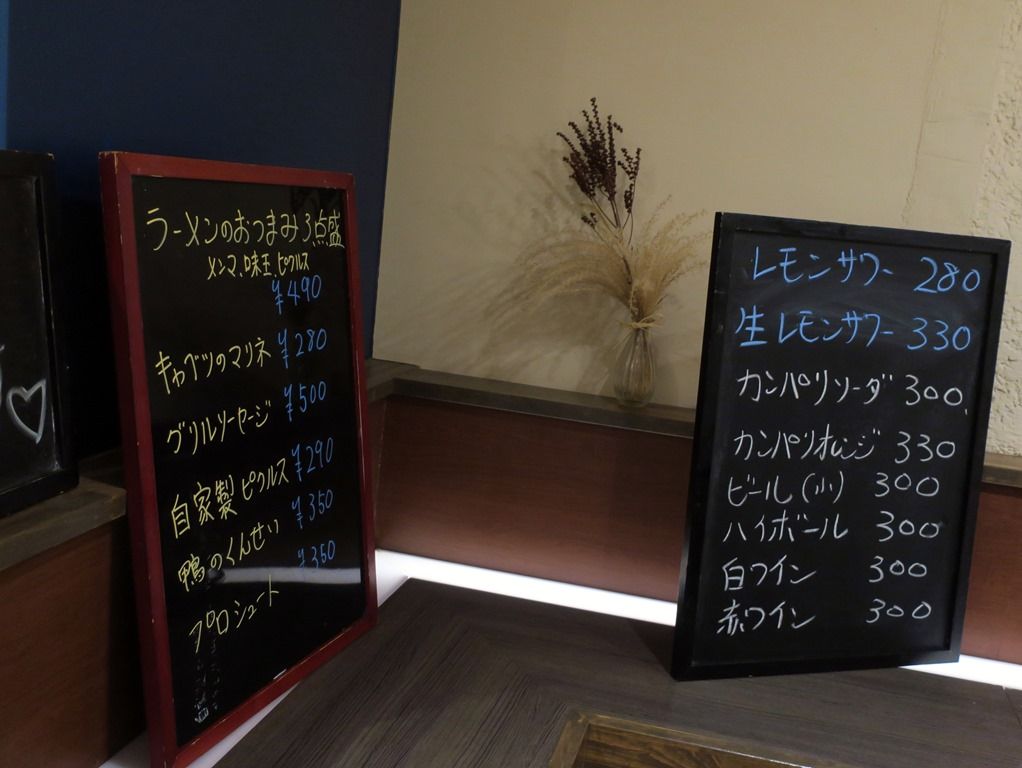 ラーメンのおつまみ3点盛
メンマ、味玉、ピクルス
¥490
キャベツのマリネ ¥280
グリルソーセージ ¥500
自家製ピクルス ¥290
鴨のくんせい ¥350
プロシュート ¥350
レモンサワー 280
生レモンサワー 330
カンパリソーダ 300
カンパリオレンジ 330
ビール(小) 300
ハイボール 300
白ワイン 300
赤ワイン 300